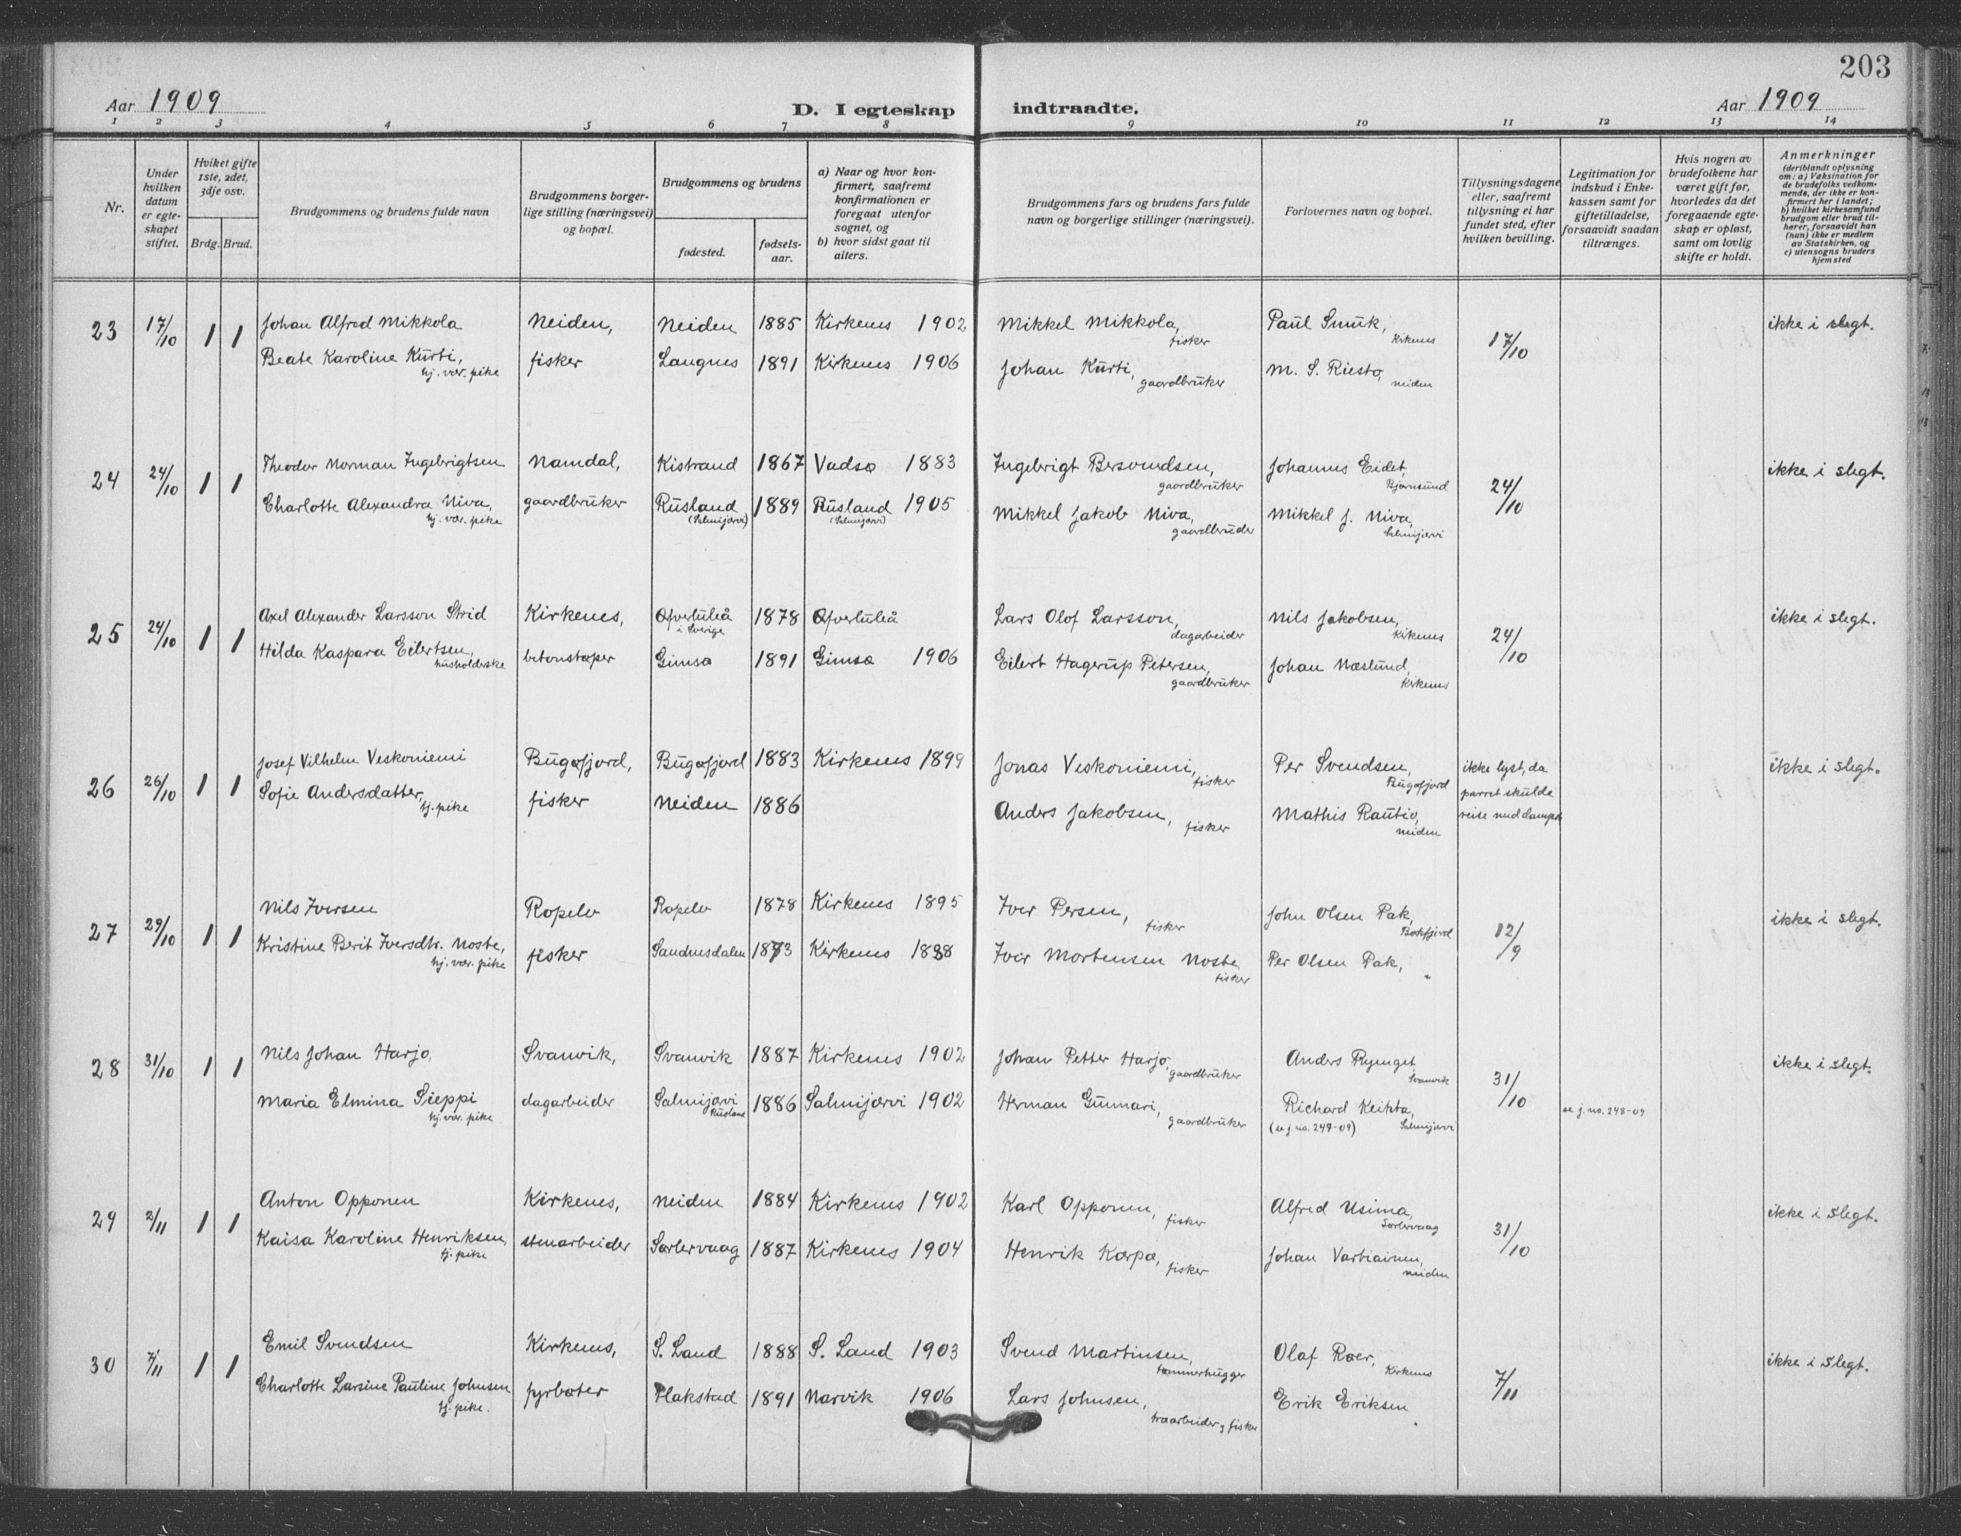 203
Aar 1909 D. I egteskap indtraadte. Aar 1909
1 2 3 4 5 6 7 8 9 10 11 12 13 14
Nr.
Under hvilken datum er egteskapet stiftet.
Hviket gifte 1ste, 2det, 3dje osv.
Brdg. Brud.
Brudgommens og brudens fulde navn
Brudgommens borgerlige stilling (næringsvei) og bopæl.
Brudgommens og brudens
fødested. fødselsaar.
a) Naar og hvor konfirmert, saafremt konfirmationen er foregaat utenfor sognet, og
b) hvor sidst gaat til alters.
Brudgommens fars og brudens fars fulde navn og borgerlige stillinger (næringsvei).
Forlovernes navn og bopæl.
Tillysningsdagene eller, saafremt tillysning ei har fundet sted, efter hvilken bevilling.
Legitimation for indskud i Enkekassen samt for giftetilladelse, forsaavidt saadan tiltrænges.
Hvis nogen av brudefolkene har været gift før, hvorledes da det foregaaende egteskap er opløst, samt om lovlig skifte er holdt.
Anmerkninger
(deriblandt oplysning om: a) Vaksination for de brudefolks vedkommende, der ikke er konfirmert her i landet; b) hvilket kirkesamfund brudgom eller brud tilhører, forsaavidt han (hun) ikke er medlem av Statskirken, og c) utensogns bruders hjemsted
23 17/10 1 1 Johan Alfred Mikkola Neiden, Neiden 1885 Kirkenes 1902 Mikkel Mikkola, fisker Paul Smuk, Kirkenes 17/10 ikke i slegt.
Beate Karoline Kurti, hj. vær. pike fisker Langnes 1891 Kirkenes 1906 Johan Kurti, gaardbruker M. S. Riesto, Neiden
24 24/10 1 1 Theodor Norman Ingebrigtsen Namdal, Kistrand 1867 Vadsø 1883 Ingebrigt Bersvendsen, gaardbruker Johannes Eidet, Bjørnsund 24/10 ikke i slegt.
Charlotte Alexandra Niva, hj. vær. pike gaardbruker Rusland (Salmijærvi) 1889 Rusland (Salmijærvi) 1905 Mikkel Jakob Niva, gaardbruder Mikkel J. Niva, Salmijærvi
25 24/10 1 1 Axel Alexander Larsson Strid Kirkenes, Øfvertuleå i Sverige 1878 Øfvertuleå Lars Olof Larsson, dagarbeider Nils Jakobsen, Kirkenes 24/10 ikke i slegt.
Hilda Kaspara Eilertsen, husholderske betonstøper Gimsø 1891 Gimsø 1906 Eilert Hagerup Petersen, gaardbruker Johan Næslund, Kirkenes
26 26/10 1 1 Josef Vilhelm Veskoniemi Bugøfjord, Bugøfjord 1883 Kirkenes 1899 Jonas Veskoniemi, fisker Per Svendsen, Bugøfjord ikke lyst, da parret skulde reise med dampsk ikke i slegt.
Sofie Andersdatter, tj. pike fisker Neiden 1886 Anders Jakobsen, fisker Mathis Rautio, Neiden
27 29/10 1 1 Nils Iversen Ropelv Ropelv 1878 Kirkenes 1895 Iver Persen, fisker John Olsen Pak, Bokfjord 12/9 ikke i slegt.
Kristine Berit Iversdtr. Noste, hj. vær. pike fisker Sandnesdalen 1873 Kirkenes 1888 Iver Mortensen Noste fisker Per Olsen Pak, "
28 31/10 1 1 Nils Johan Harjo, Svanvik, Svanvik 1887 Kirkenes 1902 Johan Petter Harjo, gaardbruker Anders Rynget, Svanvik 31/10 ikke i slegt.
Maria Elmina Sieppi hj. vær. pike dagarbeider Salmijærvi Rusland 1886 Salmijærvi 1902 Herman Gunnari, gaardbruker Richard Keihta, (se j. no. 248-09) Salmijærvi se j. no. 248-09
29 2/11 1 1 Anton Opponen Kirkenes, Neiden 1884 Kirkenes 1902 Karl Opponen, fisker Alfred Usima, Sørlervaag 31/10 ikke i slegt.
Kaisa Karoline Henriksen, tj. pike stenarbeider Sørlervaag 1887 Kirkenes 1904 Henrik Karpa, fisker Johan Varbiainen, Neiden
30 7/11 1 1 Emil Svendsen Kirkenes, S. Land 1888 S. Land 1903 Svend Martinsen, tømmerhugger Olaf Roer, Kirkenes 7/11 ikke i slegt.
Charlotte Larsine Pauline Johnsen tj. pike. fyrbøter Flakstad 1891 Narvik 1906 Lars Johnsen, træarbeider, fisker Erik Eriksen "